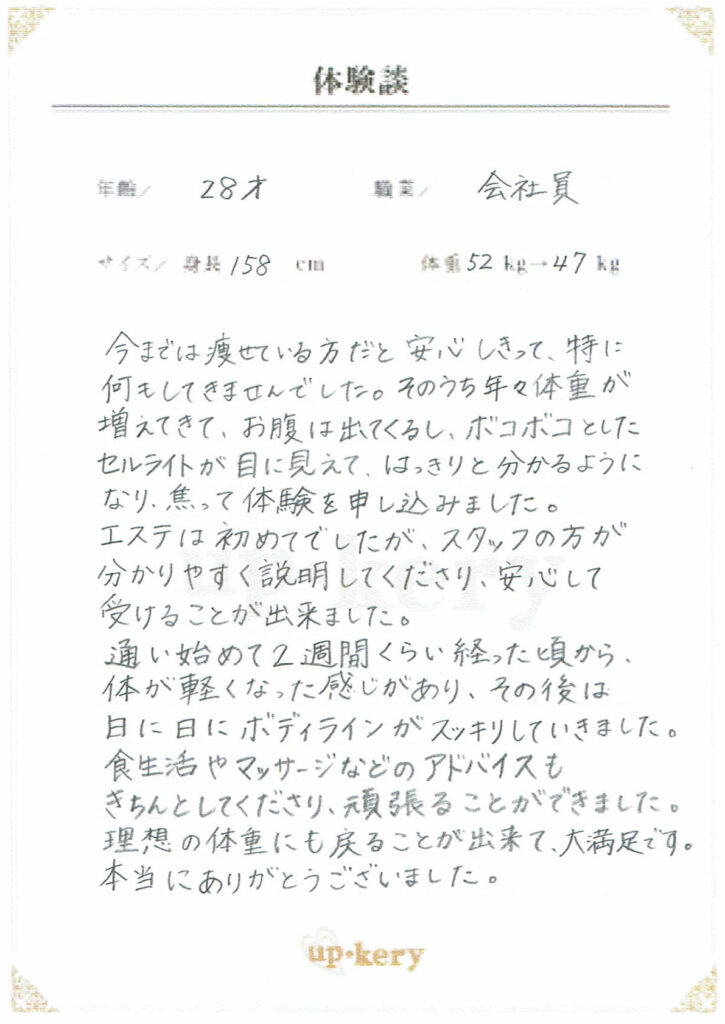 体験談
年齢／ 28才 職業／ 会社員
サイズ／ 身長 158 cm 体重 52 kg→47 kg
今までは痩せている方だと安心しきって、特に
何もしてきませんでした。そのうち年々体重が
増えてきて、お腹は出てくるし、ボコボコとした
セルライトが目に見えて、はっきりと分かるように
なり、焦って体験を申し込みました。
エステは初めてでしたが、スタッフの方が
分かりやすく説明してくださり、安心して
受けることが出来ました。
通い始めて2週間くらい経った頃から、
体が軽くなった感じがあり、その後は
日に日にボディラインがスッキリしていきました。
食生活やマッサージなどのアドバイスも
きちんとしてくださり、頑張ることができました。
理想の体重にも戻ることが出来て、大満足です。
本当にありがとうございました。
up・kery